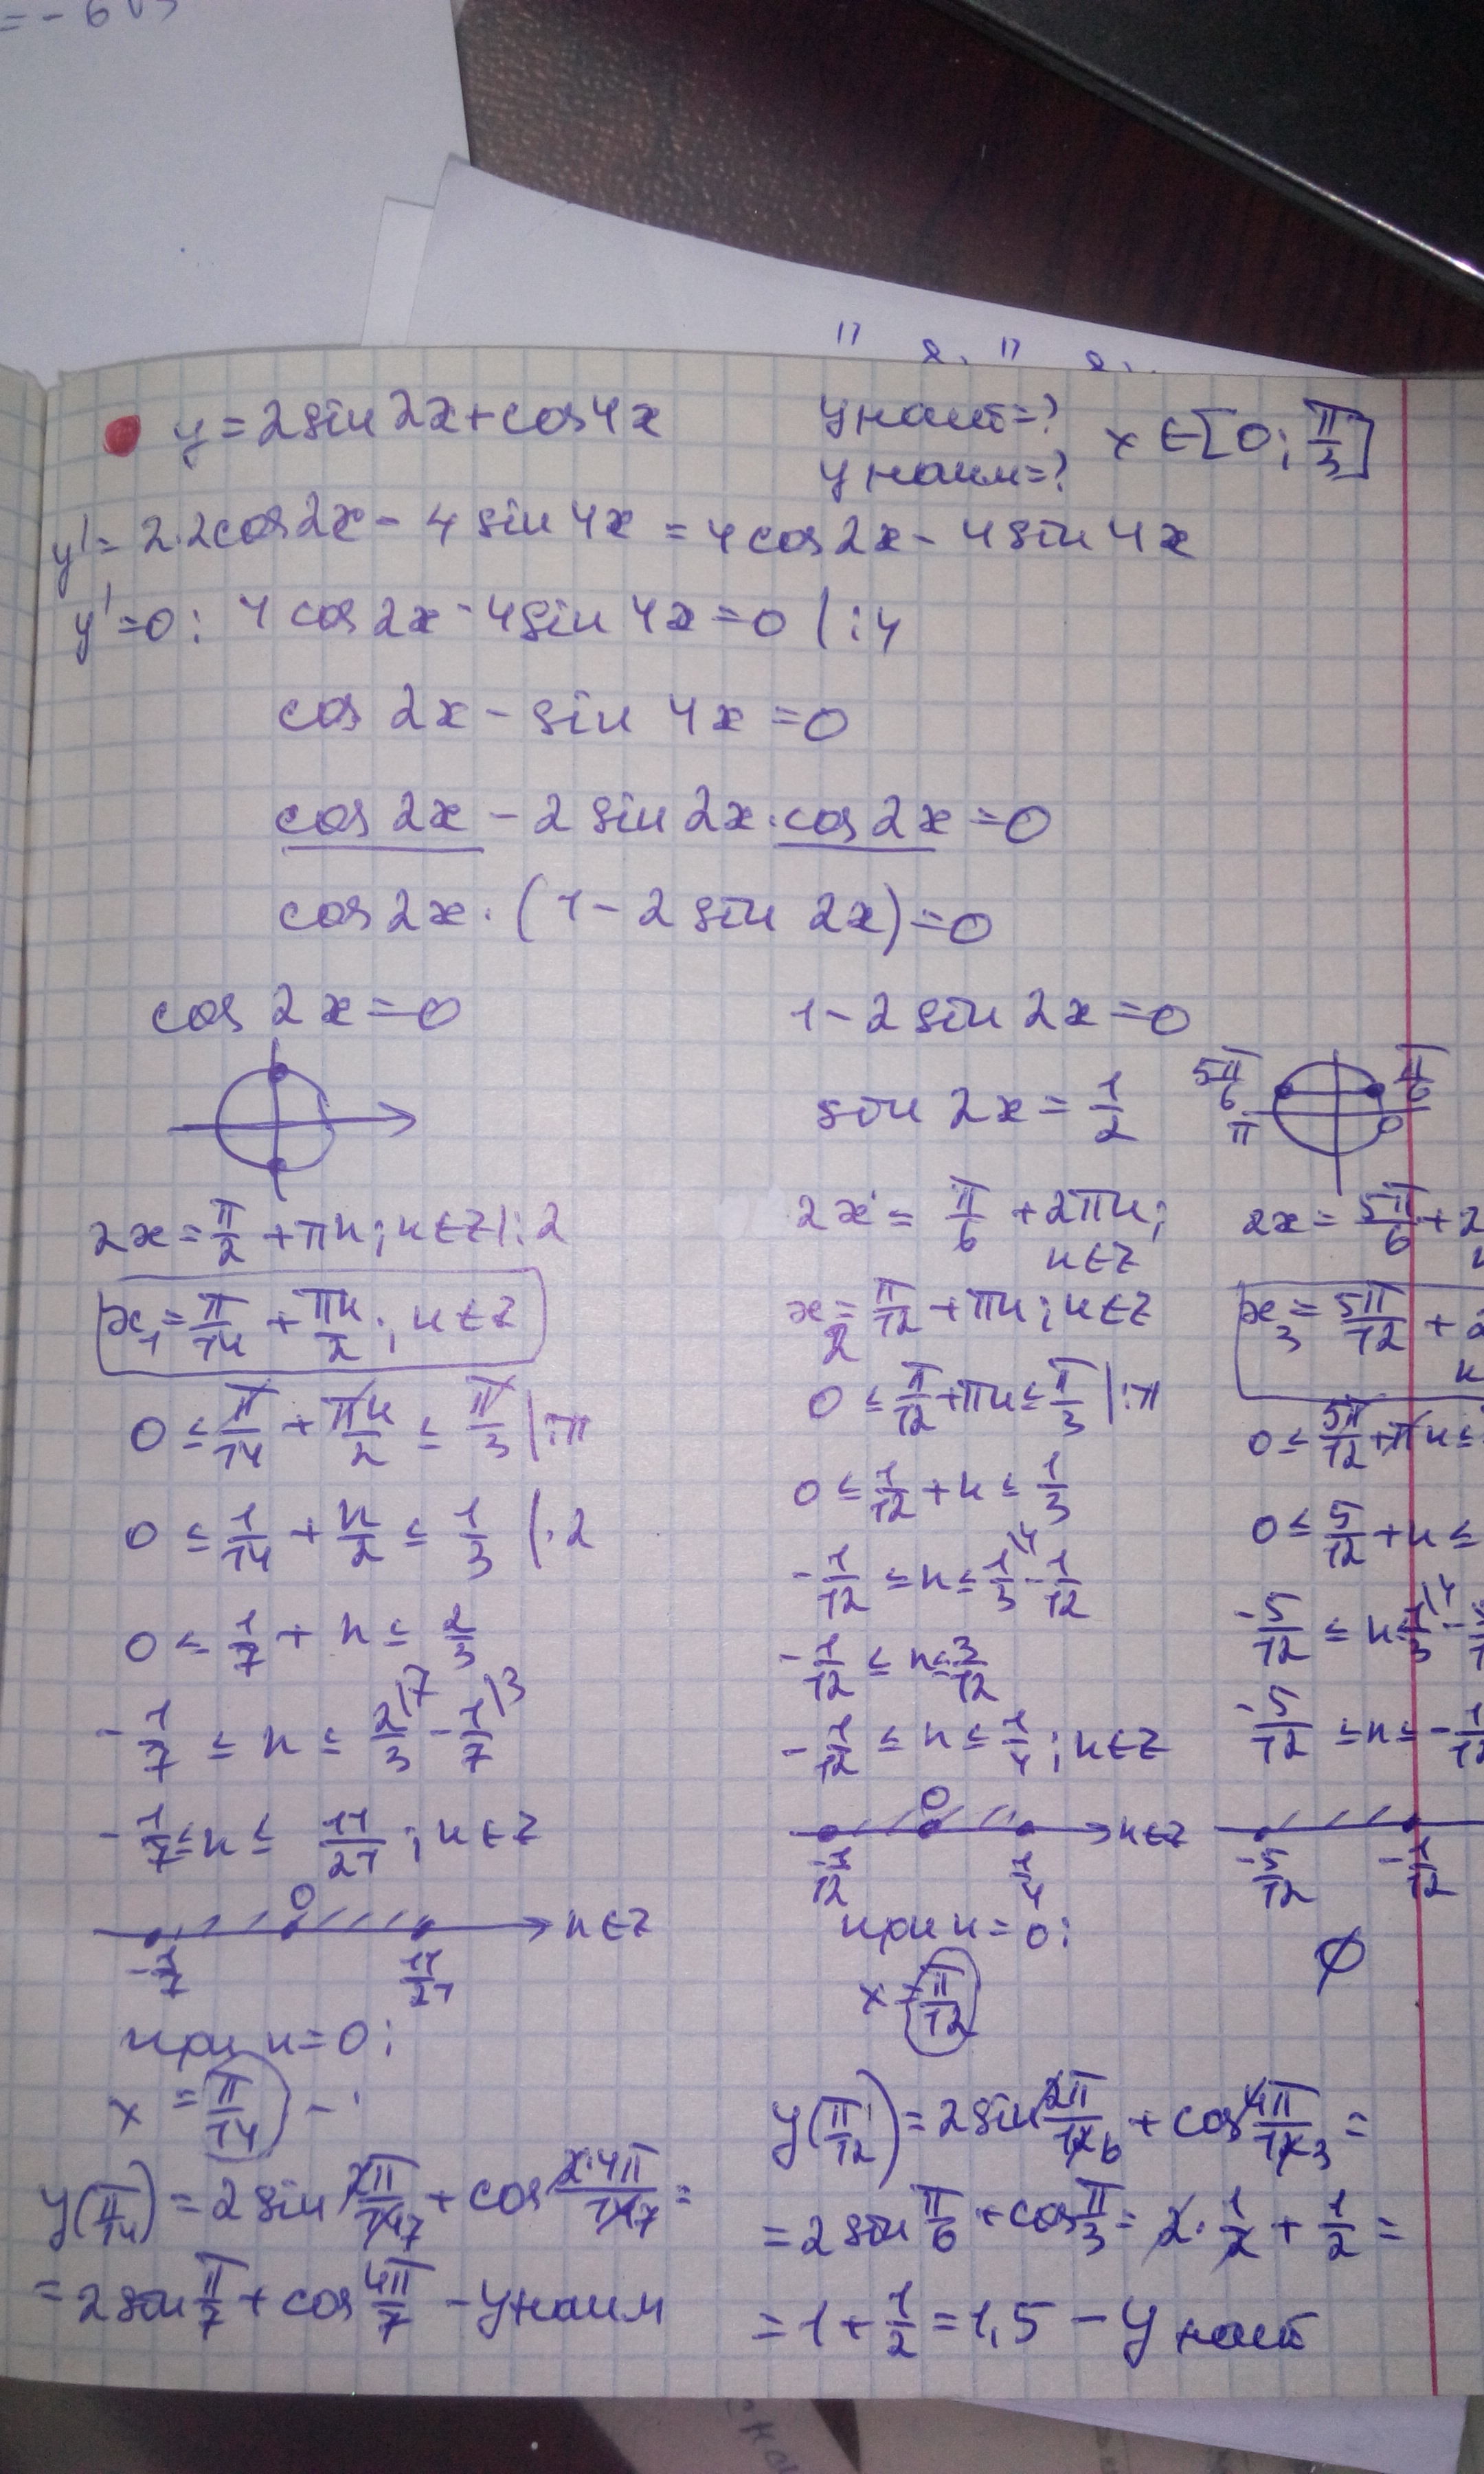 = - 6√3
y = 2sin2x + cos4x
y наиб = ?
y наим = ?
x ∈ [0; π/3]
y' = 2·2cos2x - 4sin4x = 4cos2x - 4sin4x
y' = 0: 4cos2x - 4sin4x = 0 |:4
cos2x - sin4x = 0
cos2x - 2sin2x·cos2x = 0
cos2x·(1 - 2sin2x) = 0
cos2x = 0
2x = π/2 + πn; n∈Z |:2
x₁ = π/14 + πn/2; n∈Z
0 ≤ π/14 + πn/2 ≤ π/3 |:π
0 ≤ 1/14 + n/2 ≤ 1/3 |·2
0 ≤ 1/7 + n ≤ 2/3
-1/7 ≤ n ≤ 2/3\7 - 1/7\3
-1/7 ≤ n ≤ 11/21; n∈Z
0
-1/7 11/21 n∈Z
при n = 0:
x = π/14
y(π/14) = 2sin 2π/14 7 + cos 2·4π/14 7 =
= 2sin π/7 + cos 4π/7 - y наим
1 - 2sin2x = 0
sin2x = 1/2
5π/6 π/6
π 0
2x = π/6 + 2πn;
n∈Z
x₂ = π/12 + πn; n∈Z
0 ≤ π/12 + πn ≤ π/3 |:π
0 ≤ 1/12 + n ≤ 1/3
-1/12 ≤ n ≤ 1/3\4 - 1/12
-1/12 ≤ n ≤ 3/12
-1/12 ≤ n ≤ 1/4; n∈Z
0
-1/12 1/4 n∈Z
при n = 0:
x = π/12
y(π/12) = 2sin 2π/12 6 + cos 4π/12 3 =
= 2sin π/6 + cos π/3 = 2·1/2 + 1/2 =
= 1 + 1/2 = 1,5 - y наиб
2x = 5π/6 + 2
x₃ = 5π/12 +
0 ≤ 5π/12 + πn ≤
0 ≤ 5/12 + n ≤
-5/12 ≤ n ≤ 1/3\4 -
-5/12 ≤ n ≤ -1/12
-5/12 -1/12
∅